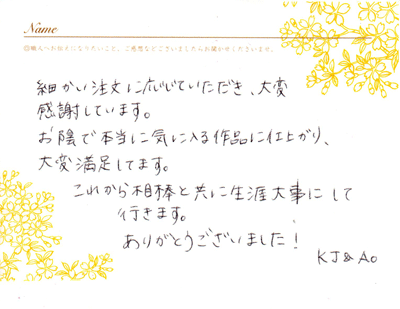 Name
職人へお知せになりたいこと、ご感想などございましたらお聞かせくださいませ。
細かい注文に応じていただき、大変
感謝しています。
お陰で本当に気に入る作品に仕上がり、
大変満足してます。
これから相棒と共に生涯大事にして
行きます。
ありがとうございました!
KJ & Ao